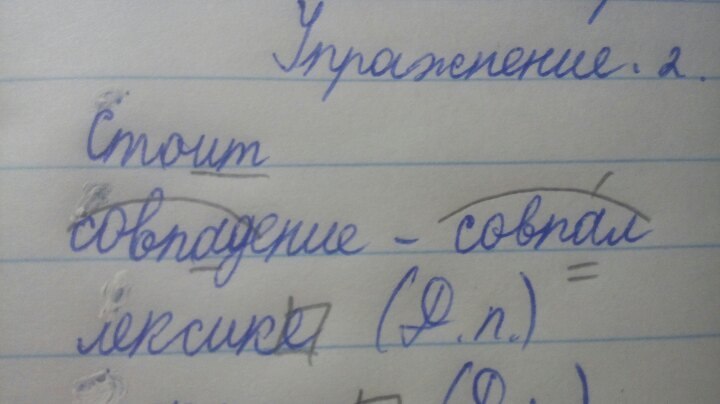 Упражнение. 2.
Стоит
совпадение - совпа́л
лексике (Д.п.)